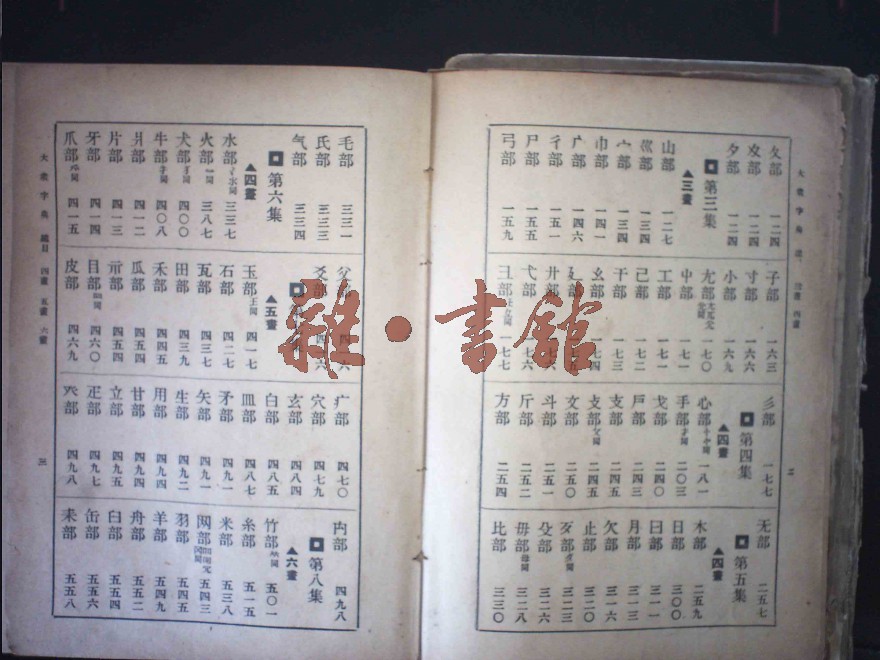 大眾字典
三畫 四畫
夂部 一二四
夊部 一二四
夕部 一二四
第三集
▲三畫
山部 一二七
巛部 一三四
宀部 一三四
巾部 一四一
广部 一四六
彳部
尸部 一五五
弓部 一五九
子部 一六三
寸部 一六六
小部 一六九
尢部 一七〇
屮部 一七一
工部 一七一
己部 一七二
干部 一七三
幺部 一七四
廴部
廾部 一七六
弋部 一七六
彐部 一七七
彡部 一七七
第四集
▲四畫
心部 一八一
手部 二〇三
戈部 二四〇
戶部 二四三
支部 二四五
攴部 二四五
文部 二五〇
斗部 二五一
斤部 二五二
方部 二五四
无部 二五七
第五集
▲四畫
木部 二五九
日部 三〇〇
曰部 三一一
月部 三一三
欠部 三一六
止部 三二〇
歹部 三二三
殳部 三二六
毋部 三二八
比部 三三〇
二
毛部 三三一
氏部 三三三
气部 三三四
第六集
▲四畫
水部 三三七
火部 三八七
犬部 四〇〇
牛部 四〇八
爿部 四一二
片部 四一三
牙部 四一四
爪部 四一五
父部
爻部
▲五畫
玉部王同 四一七
石部 四二七
瓦部 四三七
田部 四三九
禾部 四四五
瓜部 四五四
示部 四五四
目部 四六〇
皮部 四六九
疒部 四七〇
穴部 四七九
玄部 四八四
白部 四八五
皿部 四八七
矛部 四九一
矢部 四九一
生部 四九二
用部 四九四
甘部 四九四
立部 四九五
疋部 四九七
癶部 四九八
禸部 四九八
第八集
▲六畫
竹部 五〇一
糸部 五一五
米部 五三八
网部 五四三
羽部 五四五
羊部 五四九
舟部 五五二
臼部 五五四
缶部 五五六
耒部 五五八
大眾字典 總目 四畫 五畫 六畫
三
雜·書館